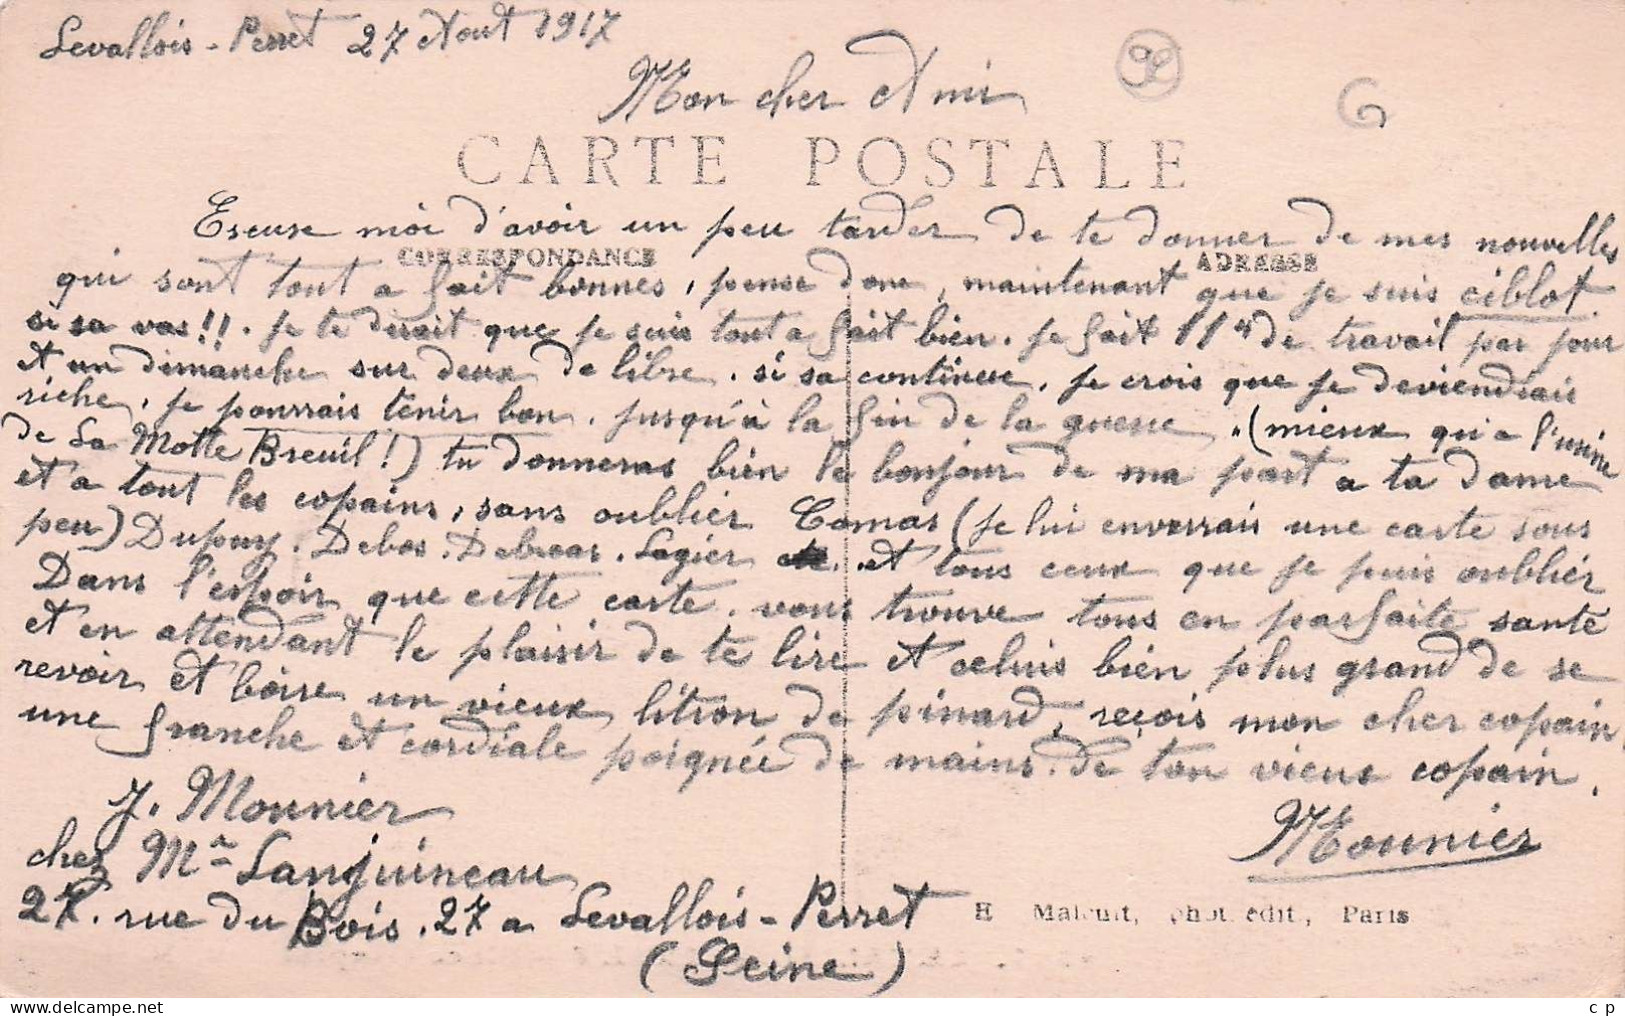 Levallois-Perret 27 Aout 1917
Mon cher Ami
CARTE POSTALE
Escuse moi d'avoir un peu tarder de te donner de mes nouvelles
CORRESPONDANCE
ADRESSE
qui sont tout a fait bonnes, pense donc, maintenant que je suis ciblot
si sa vas!!. je te dirait que je suis tout a fait bien. je fait 11h de travail par jour
et un dimanche sur deux de libre. si sa continue. je crois que je deviendrais
riche. je pourrais tenir bon. jusqu'à la fin de la guerre. (mieux qu'a l'usine
de La Motte Breuil!) tu donneras bien le bonjour de ma part a ta dame
et a tout les copains, sans oublier Comas (je lui enverrais une carte sous
peu) Dupuy. Debos. Lagier et tous ceux que je puis oublier
Dans l'espoir que cette carte. vous trouve tous en parfaite santé
et en attendant le plaisir de te lire et celuis bien plus grand de se
revoir et boire un vieux litron de pinard, reçois mon cher copain
une franche et cordiale poignée de mains. de ton vieux copain.
J. Mounier
Mounier
chez Mr Sanjuineau
27. rue du Bois. 27 a Levallois-Perret
E Malcuit, phot. édit, Paris
(Seine)
c p